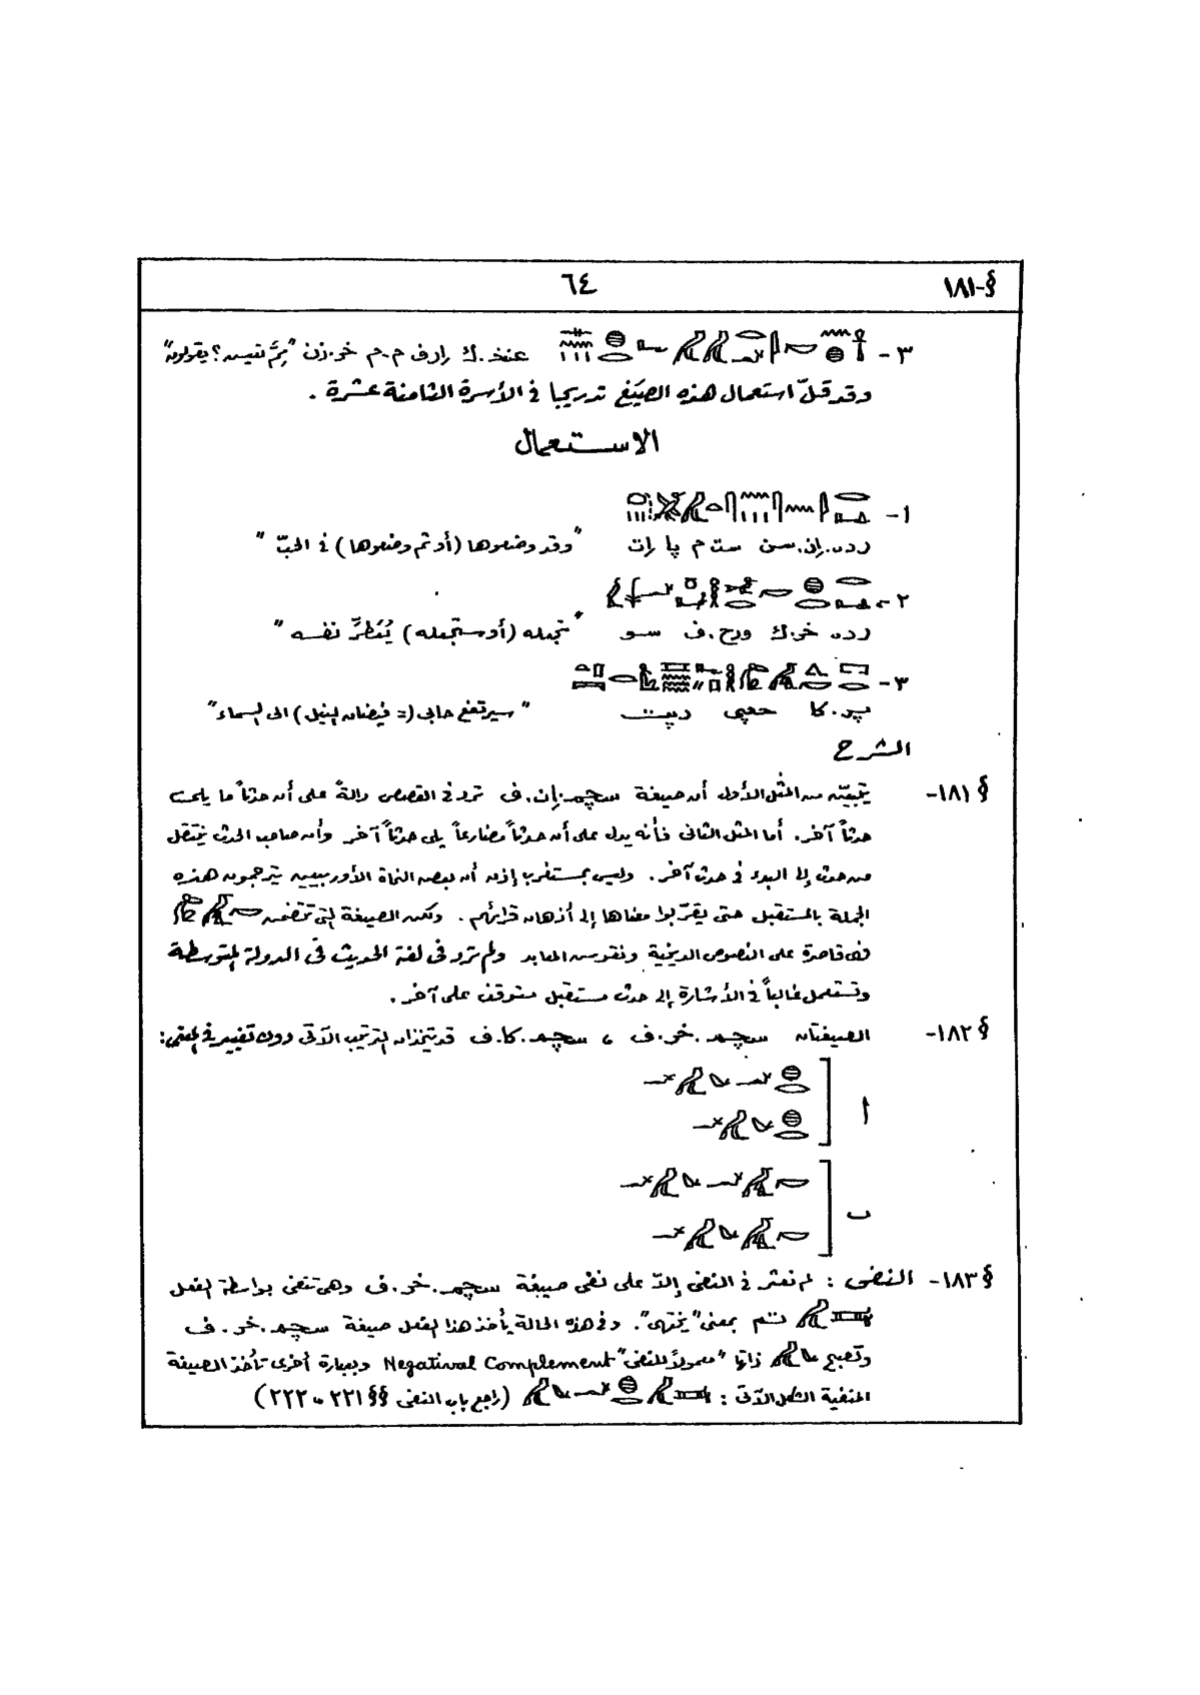 §-١٨١ ٦٤
٣- عنخ.ك رارف م.م خر.زن "بمَّ تعيش؟ يقولون"
وقد قلّ استعمال هذه الصيَغ تدريجيا في الأسرة الثامنة عشرة .
الاستعمال
١-
رده.إن.سن ست م پا رات "وقد وضعوها (أو ثم وضعوها) في الحبّ"
٢-
رده خر.ك ورح.ف سو "تجعله (أو ستجعله) يُعَطِّر نفسه"
٣-
پر.كا حعپى رپت "سيرتفع حابى (= فيضان النيل) الى السماء"
الشرح
§ ١٨١- يتبيّن من المثل الأول أن صيغة سچم.إن.ف ترد في القصص دالةً على أن حدثاً ما يلحق
حدثاً آخر. أما المثل الثانى فأنه يدل على أن حدثاً مضارعاً يلى حدثاً آخر وأن صاحب الحدث ينتقل
من حدث إلى البدء في حدث آخر. وليس بمستغرب إذن أن بعض النحاة الأوربيين يترجمون هذه
الجملة بالمستقبل حتى يقرّبوا معناها إلى أذهان قرائهم. ولكن الصيغة التى تتضمن
فهى قاصرة على النصوص الدينية ونقوش المعابد ولم ترد فى لغة الحديث فى الدولة المتوسطة
وتستعمل غالباً في الأشارة إلى حدث مستقبل متوقف على آخر.
§ ١٨٢- الصيغتان سچم.خر.ف ، سچم.كا.ف قد تتخذان الترتيب الآتى دون تغيير في المعنى:
أ
ب
§ ١٨٣- النفى : لم نعثر في النفى إلاّ على نفى صيغة سچم.خر.ف وهى تنفى بواسطة الفعل
تم بمعنى "ينتهى". وفى هذه الحالة يأخذ هذا الفعل صيغة سچم.خر.ف
وتصبح ذاتها "معمولاً للنفى" Negatival Complement وبعبارة أخرى تأخذ الصيغة
المنفية الشكل الآتى : (راجع باب النفى §§ ٢٢١، ٢٢٢)